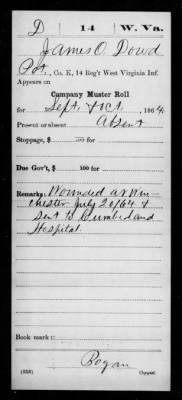 D | 14 | W. Va.
James O. Dowd
Pvt., Co. K, 14 Reg't West Virginia Inf.
Appears on
Company Muster Roll
for Sept. & Oct., 1864.
Present or absent Absent
Stoppage, $ 100 for
Due Gov't, $ 100 for
Remarks: Wounded at Win-
chester July 20/64 &
sent to Cumberland
Hospital.
Book mark:
(858)
Bogan
Copyist.